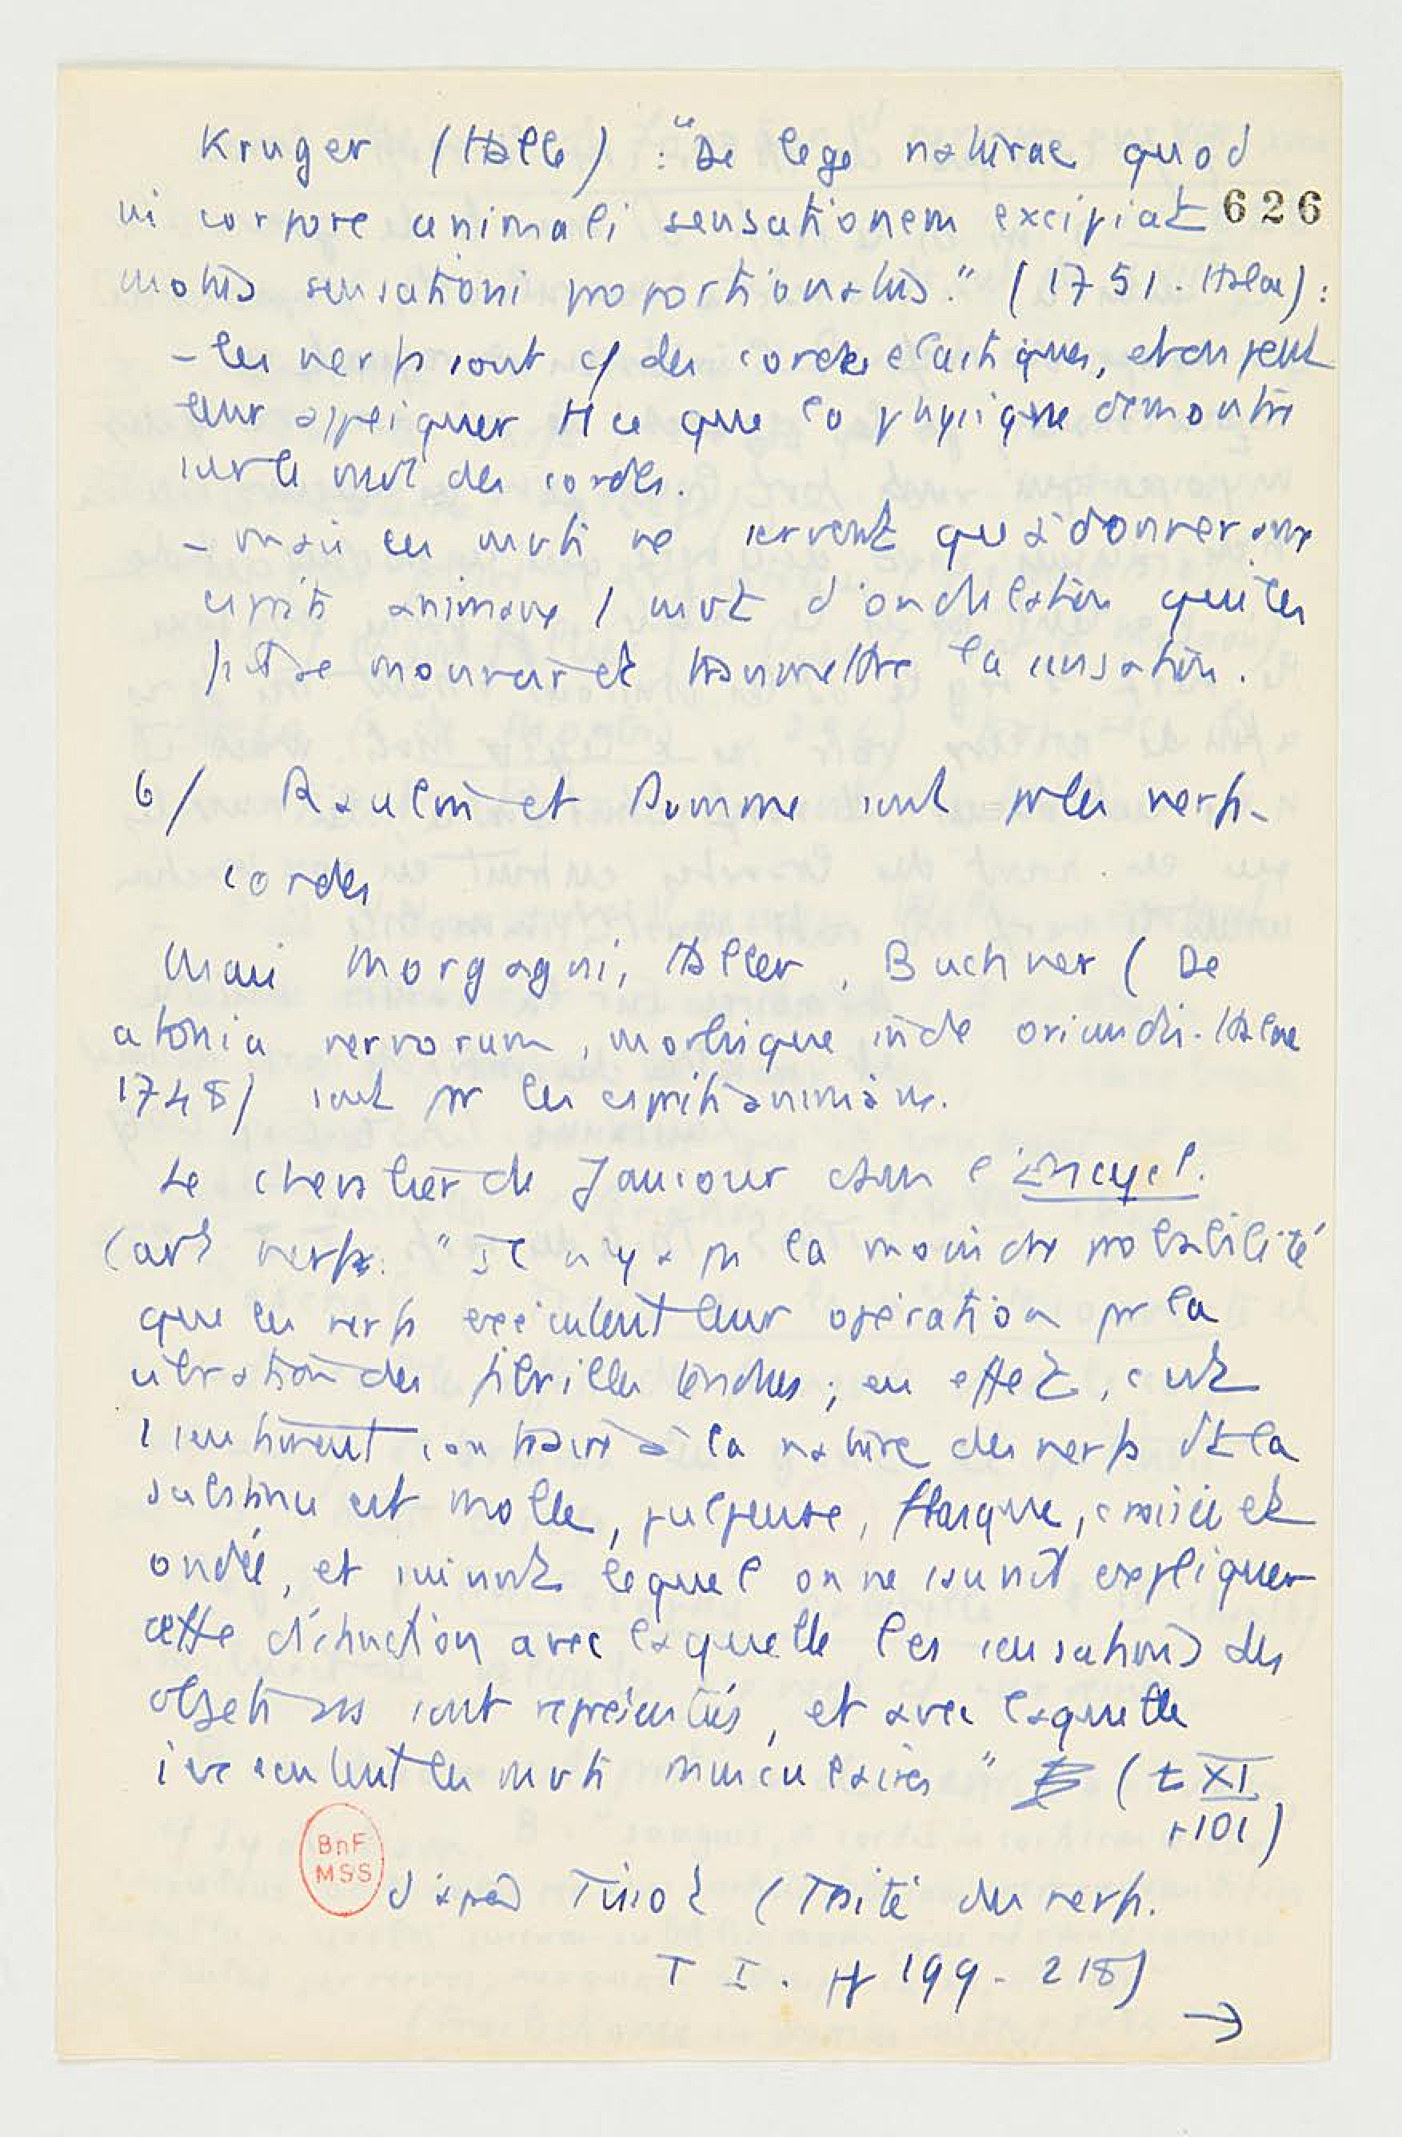 Kruger (Halle) : "De lege naturae quod
in corpore animali sensationem excipiat 626
motus sensationi proportionatus." (1751. Halae) :
- les nerfs sont c/ des cordes élastiques, et on peut
leur appliquer tt ce que la physique démontre
sur le mvt des cordes.
- mais ces mvts ne servent qu'à donner aux
esprits animaux 1 mvt d'ondulation qui les
fait se mouvoir et transmettre la sensation.
6/ Raulin et Pomme sont pr les nerfs-
cordes
Mais Morgagni, Haller, Buchner (De
atonia nervorum, morbisque inde oriundis. Halae
1748) sont pr les esprits animaux.
Le chevalier de Jaucour dans l'Encycl.
(art nerfs. "Il n'y a pas la moindre probabilité
que les nerfs exécutent leur opération par la
vibration des fibrilles tendues ; en effet, c'est
1 sentiment contraire à la nature des nerfs dt la
substance est molle, pulpeuse, flasque, croisée et
ondée, et suivant lequel on ne saurait expliquer
cette distinction avec laquelle les sensations des
objets nous sont représentés, et avec laquelle
s'exécutent les mvts musculaires" (t XI
p 101)
BnF
MSS
d'après Tissot (Traité des nerfs.
T I. pp 199-218)
→